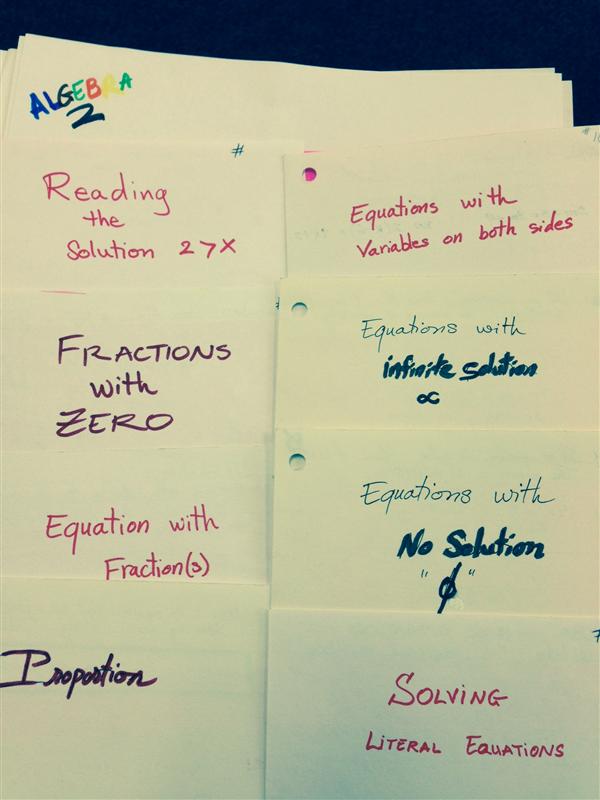 ALGEBRA
2
#
Reading
the
Solution 2>X
FRACTIONS
with
ZERO
Equation with
Fraction(s)
Proportion
Equations with
Variables on both sides
Equations with
infinite solution
∝
Equations with
No Solution
"ϕ"
SOLVING
LITERAL EQUATIONS